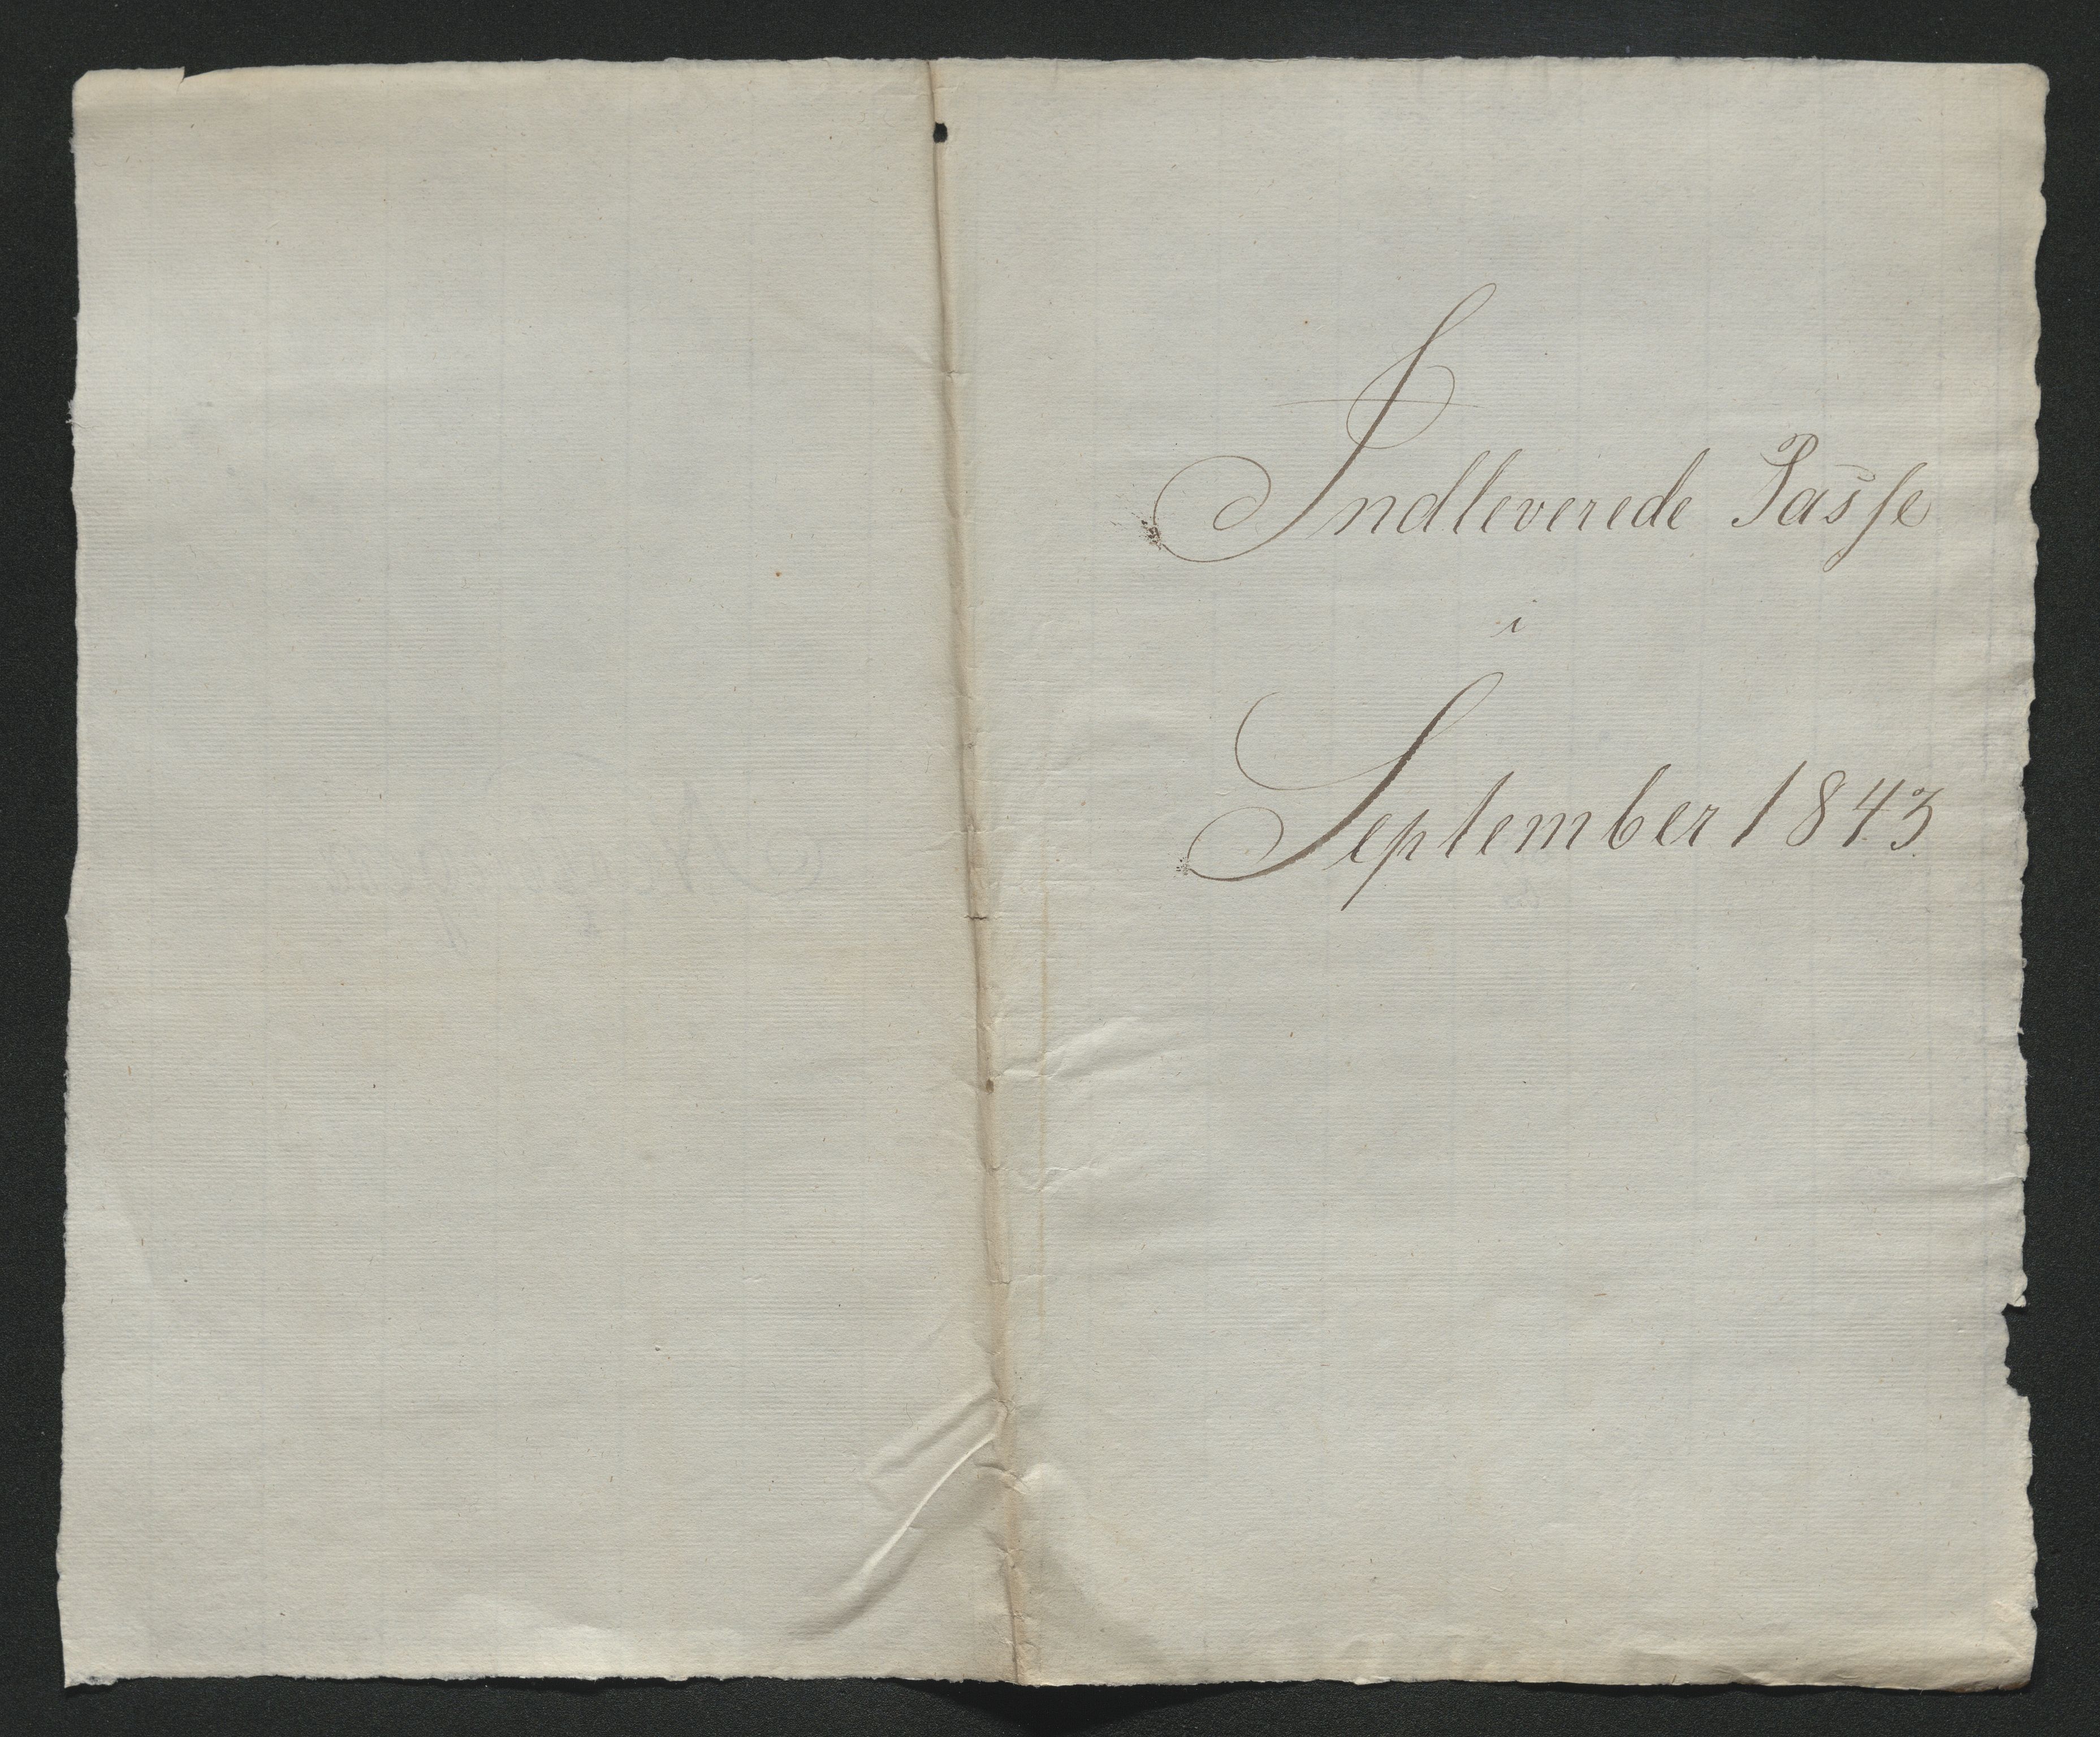 Indleverede Passe
i
September 1843